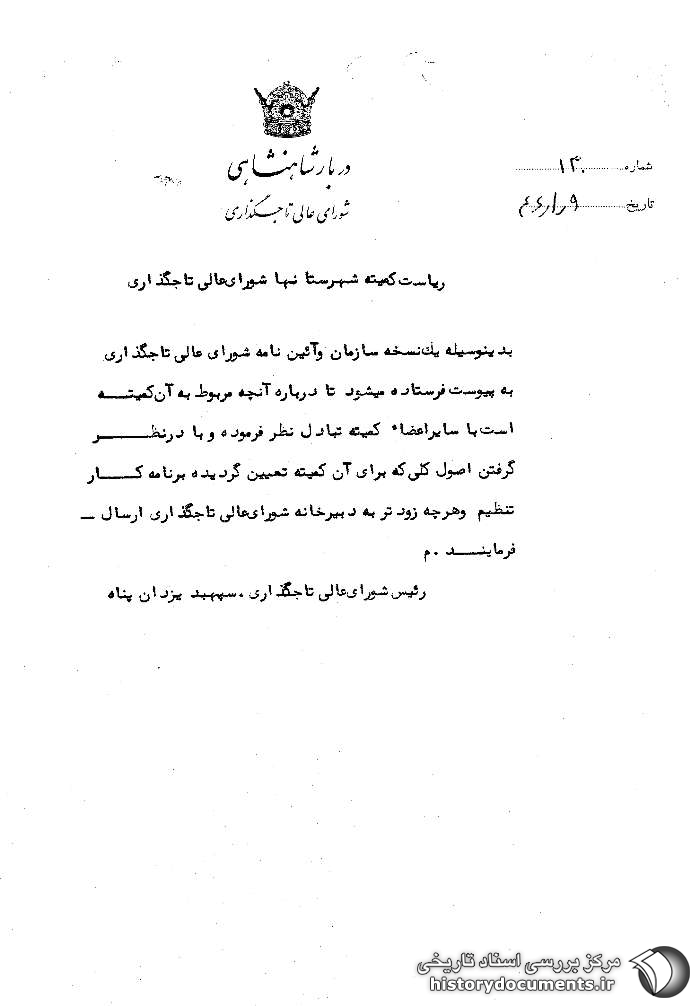 دربار شاهنشاهی
شورای عالی تاجگذاری
شماره ۱۴۰
تاریخ
ریاست کمیته شهرستانها شورای عالی تاجگذاری
بدینوسیله یك نسخه سازمان وآئین نامه شورای عالی تاجگذاری
به پیوست فرستاده میشود تا درباره آنچه مربوط به آن کمیتـــه
است با سایر اعضاء کمیته تبادل نظر فرموده و با درنظــــر
گرفتن اصول کلی که برای آن کمیته تعیین گردیده برنامه کــــار
تنظیم وهرچه زودتر به دبیرخانه شورای عالی تاجگذاری ارسال ـ
فرماینـــد .م
رئیس شورای عالی تاجگذاری .سپهبد یزدان پناه
مرکز بررسی اسناد تاریخی
historydocuments.ir